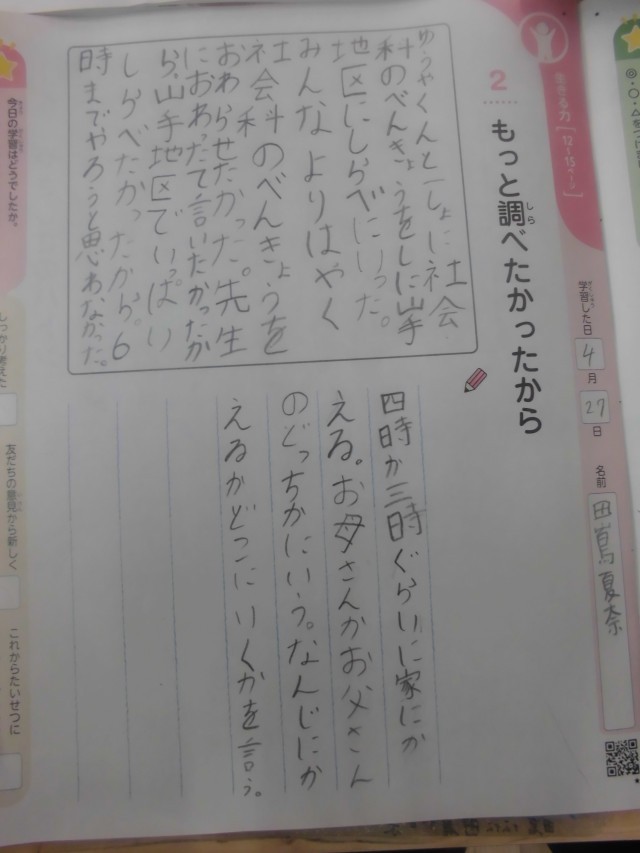 生きる力［12〜15ページ］
2
もっと調べたかったから
しら
学習した日 4月27日
がくしゅう
名前 田嶌夏奈
ゆうやくんと一しょに社会
科のべんきょうをしに山手
地区にしらべにいった。
みんなよりはやく
社会科のべんきょうを
おわらせたかった。先生
におわったて言いたかったか
ら。山手地区でいっぱい
しらべたかったから。6
時までやろうと思わなかった。
四時か三時ぐらいに家にか
える。お母さんかお父さん
のどっちかにいう。なんじにか
えるかどこにいくかを言う。
今日の学習はどうでしたか。
しっかり考えた
友だちの意見から新しく
これからたいせつに